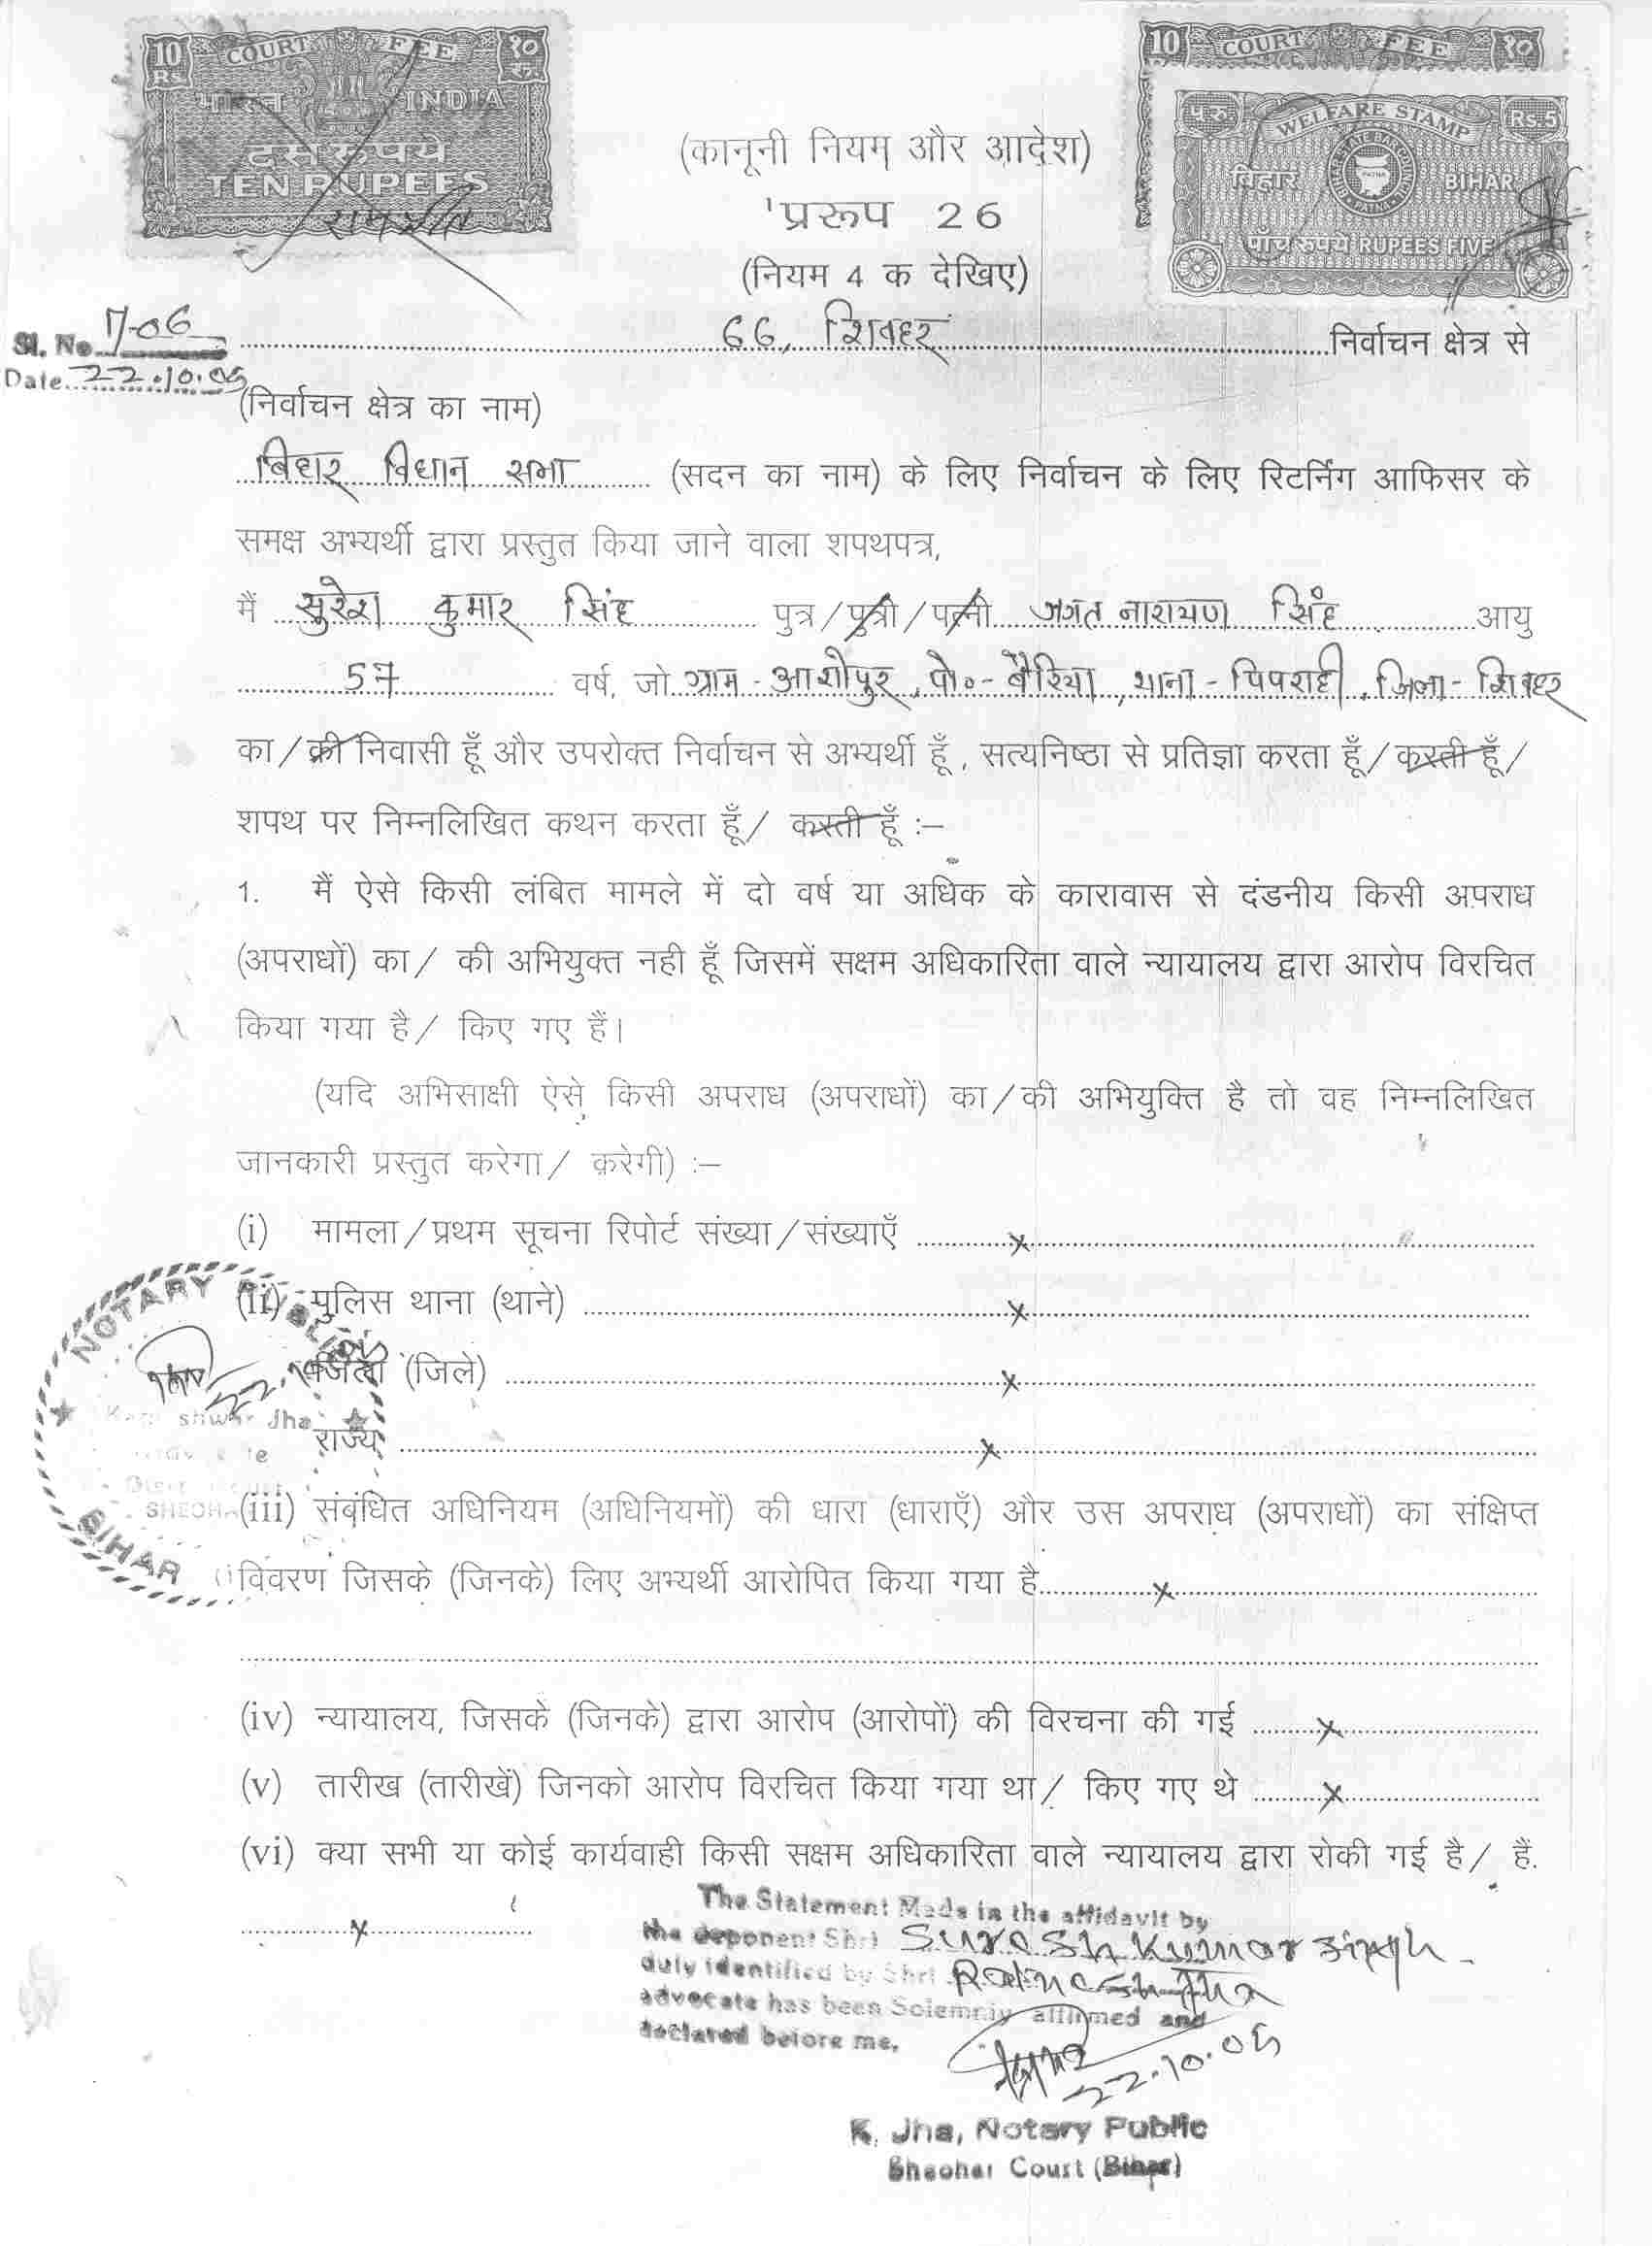 10 COURT FEE १०
Rs. रु.
भारत INDIA
दस रुपये
TEN RUPEES
10 COURT FEE १०
प रु WELFARE STAMP Rs.5
बिहार BIHAR
पाँच रुपये RUPEES FIVE
(कानूनी नियम और आदेश)
'प्ररूप 26
(नियम 4 क देखिए)
Sl. No. 1706
66, शिवहर निर्वाचन क्षेत्र से
Date 22.10.05
(निर्वाचन क्षेत्र का नाम)
बिहार विधान सभा (सदन का नाम) के लिए निर्वाचन के लिए रिटर्निंग आफिसर के
समक्ष अभ्यर्थी द्वारा प्रस्तुत किया जाने वाला शपथपत्र,
मैं सुरेश कुमार सिंह पुत्र/पुत्री/पत्नी जगत नारायण सिंह आयु
57 वर्ष, जो ग्राम - आशोपुर, पो०- बैरिया, थाना - पिपराही, जिला - शिवहर
का/की निवासी हूँ और उपरोक्त निर्वाचन से अभ्यर्थी हूँ, सत्यनिष्ठा से प्रतिज्ञा करता हूँ/करती हूँ/
शपथ पर निम्नलिखित कथन करता हूँ/ करती हूँ :–
1. मैं ऐसे किसी लंबित मामले में दो वर्ष या अधिक के कारावास से दंडनीय किसी अपराध
(अपराधों) का/ की अभियुक्त नही हूँ जिसमें सक्षम अधिकारिता वाले न्यायालय द्वारा आरोप विरचित
किया गया है/ किए गए हैं।
(यदि अभिसाक्षी ऐसे किसी अपराध (अपराधों) का/की अभियुक्ति है तो वह निम्नलिखित
जानकारी प्रस्तुत करेगा/ करेगी) :–
(i) मामला/प्रथम सूचना रिपोर्ट संख्या/संख्याएँ x
(ii) पुलिस थाना (थाने) x
जिला (जिले) x
राज्य x
NOTARY PUBLIC
Jha
BIHAR
(iii) संबंधित अधिनियम (अधिनियमों) की धारा (धाराएँ) और उस अपराध (अपराधों) का संक्षिप्त
विवरण जिसके (जिनके) लिए अभ्यर्थी आरोपित किया गया है x
(iv) न्यायालय, जिसके (जिनके) द्वारा आरोप (आरोपों) की विरचना की गई x
(v) तारीख (तारीखें) जिनको आरोप विरचित किया गया था/ किए गए थे x
(vi) क्या सभी या कोई कार्यवाही किसी सक्षम अधिकारिता वाले न्यायालय द्वारा रोकी गई है/ हैं.
x
The Statement Made in the affidavit by
the deponent Shri Suresh Kumar Singh
duly identified by Shri Ratnesh Jha
advocate has been Solemnly affirmed and
declared before me.
22.10.05
K. Jha, Notary Public
Sheohar Court (Bihar)